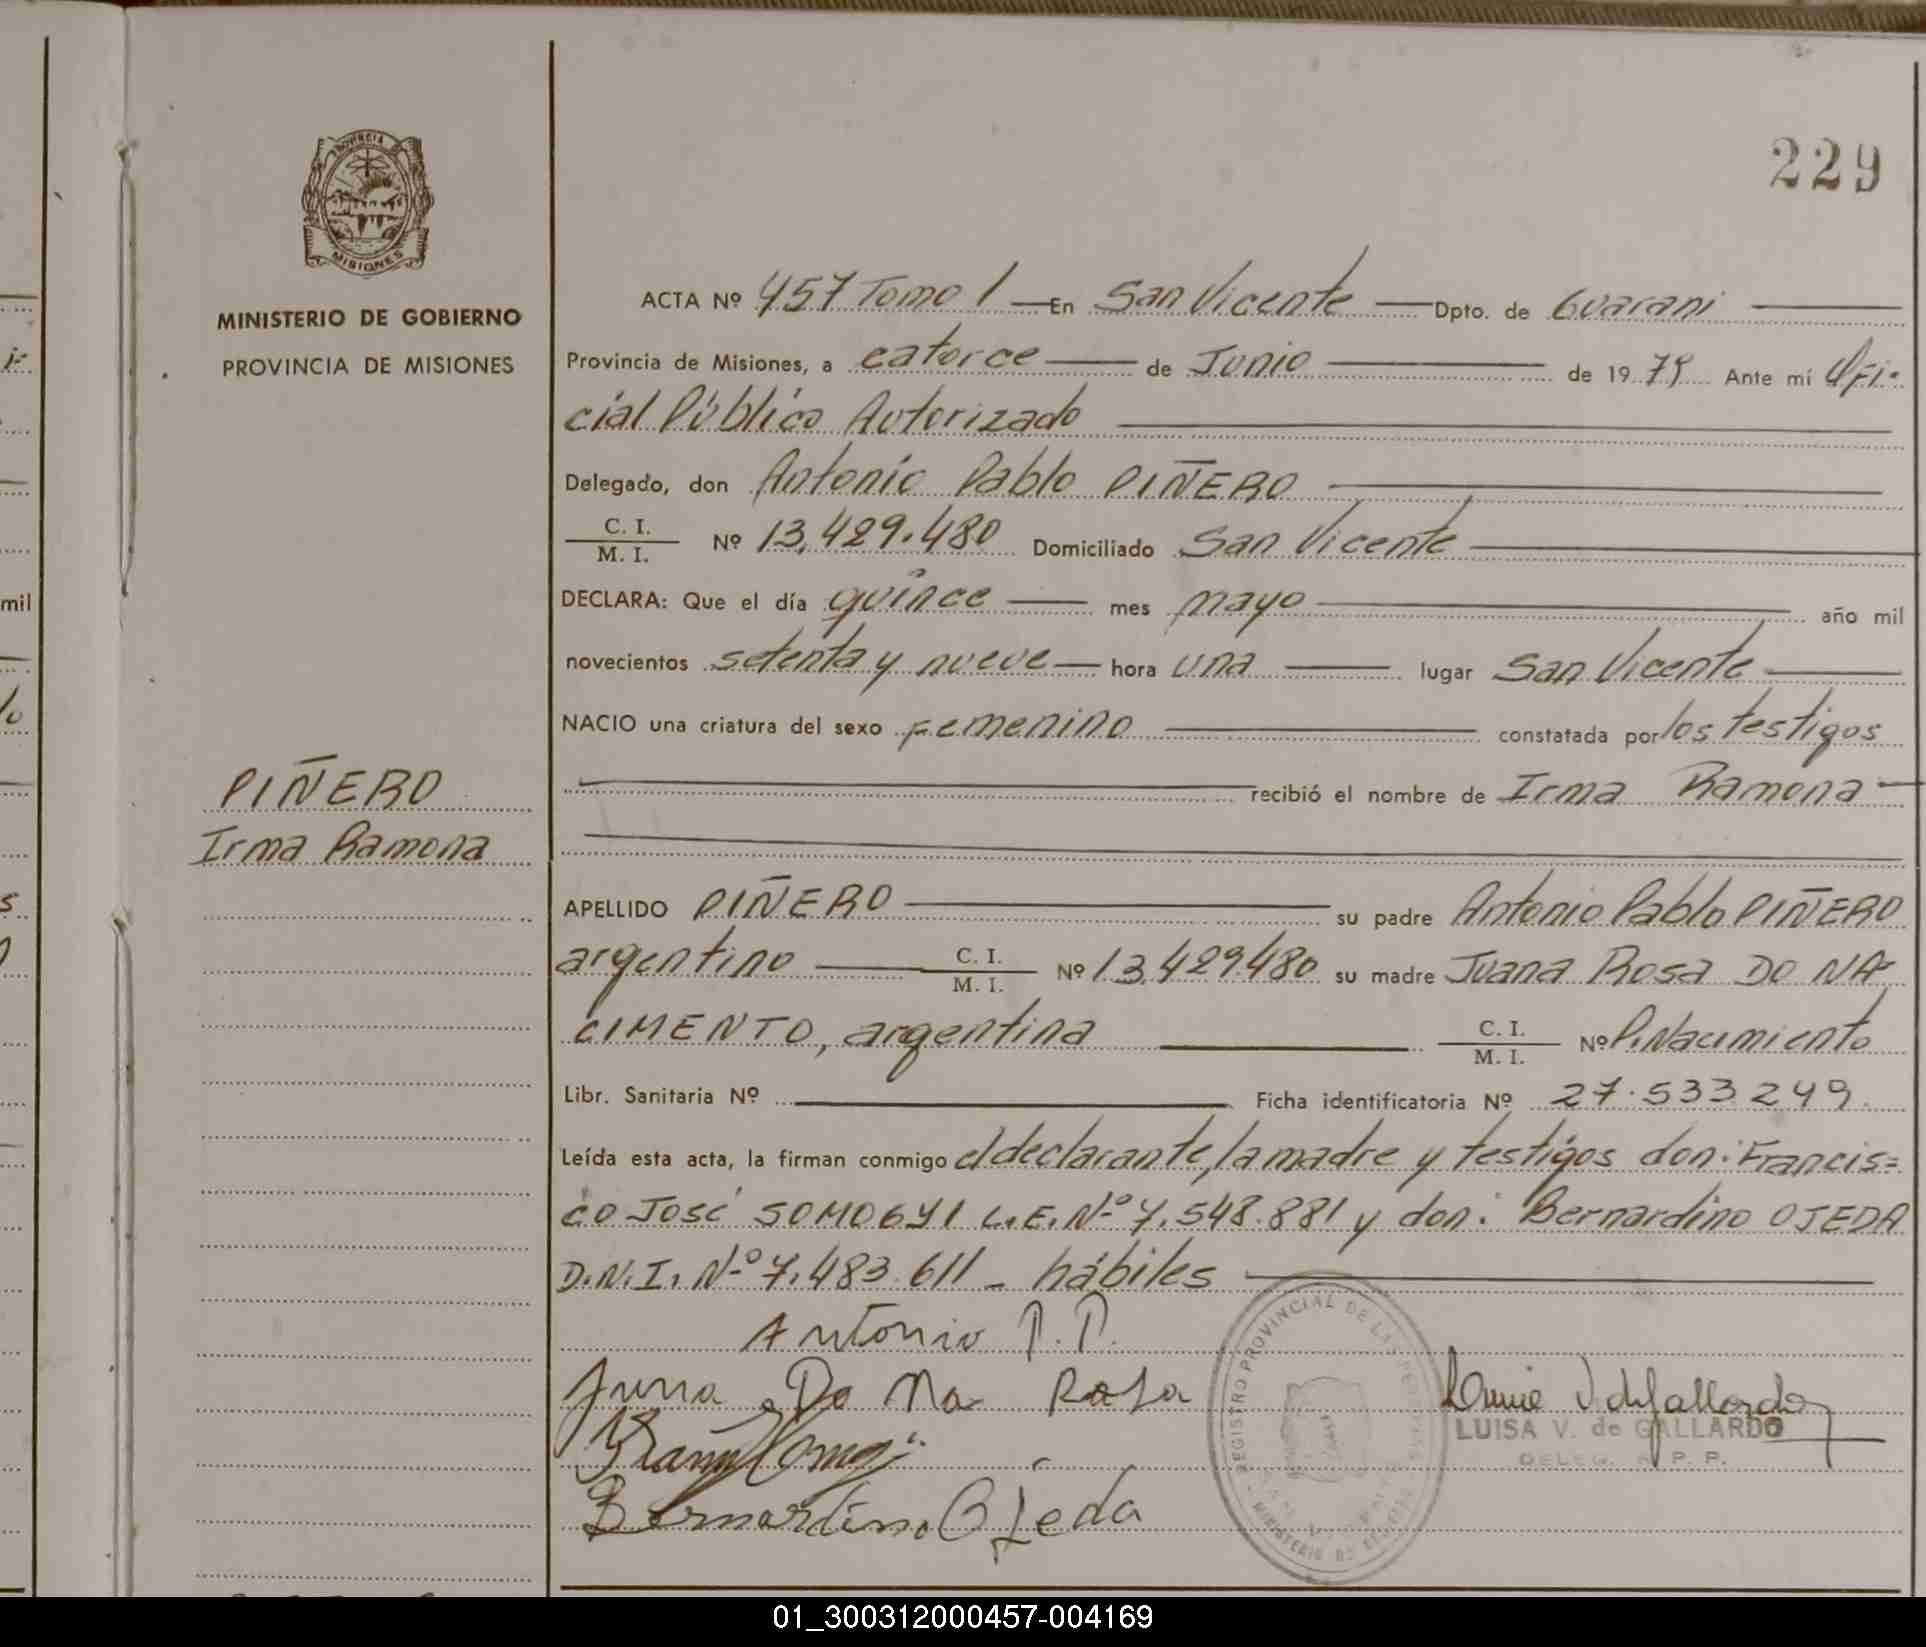 229
PROVINCIA DE
MISIONES
MINISTERIO DE GOBIERNO
PROVINCIA DE MISIONES
PIÑERO
Irma Ramona
ACTA Nº 457 Tomo I En San Vicente Dpto. de Guarani
Provincia de Misiones, a catorce de Junio de 1979 Ante mí Ofi-
cial Público Autorizado
Delegado, don Antonio Pablo PIÑERO
C. I. / M. I. Nº 13.429.480 Domiciliado San Vicente
DECLARA: Que el día quince mes mayo año mil
novecientos setenta y nueve hora una lugar San Vicente
NACIO una criatura del sexo Femenino constatada por los testigos
recibió el nombre de Irma Ramona
APELLIDO PIÑERO su padre Antonio Pablo PIÑERO
argentino C. I. / M. I. Nº 13.429.480 su madre Juana Rosa DO NA-
CIMENTO, argentina C. I. / M. I. Nº P.Nacimiento
Libr. Sanitaria Nº Ficha identificatoria Nº 27.533.249
Leída esta acta, la firman conmigo el declarante, la madre y testigos don: Francis=
co José SOMOGYI L.E. Nº 7.548.881 y don: Bernardino OJEDA
D.N.I. Nº 7.483.611 - hábiles
Antonio P. P.
Juna Do Na Rosa
Bernardino Ojeda
REGISTRO PROVINCIAL DE LAS PERSONAS
MINISTERIO DE GOBIERNO
LUISA V. de GALLARDO
DELEG. R. P. P.
mil
01_300312000457-004169